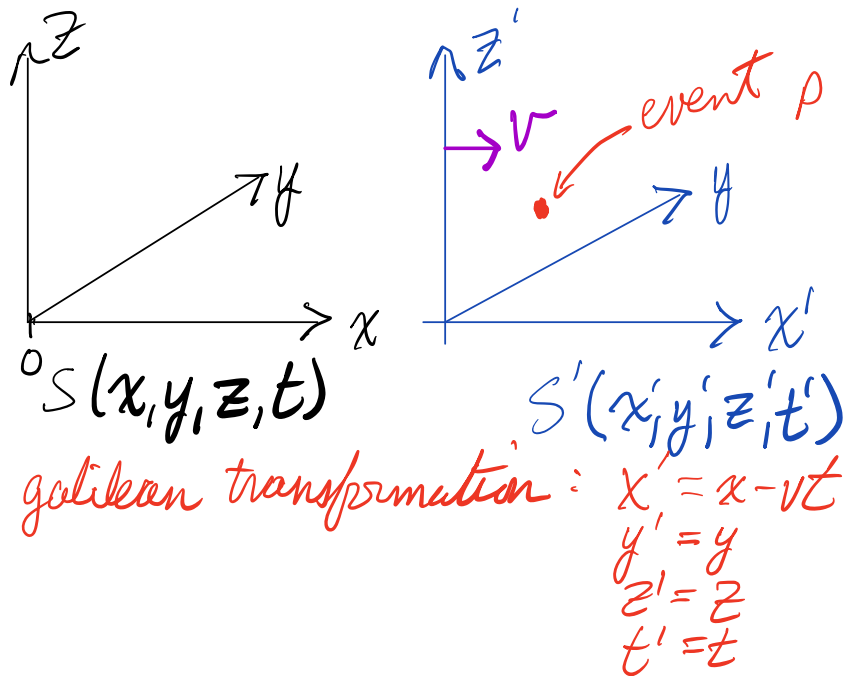 z
y
x
0
S(x,y,z,t)
z'
v
event p
y
x'
S'(x',y',z',t')
galilean transformation: x' = x-vt
y' = y
z' = z
t' = t